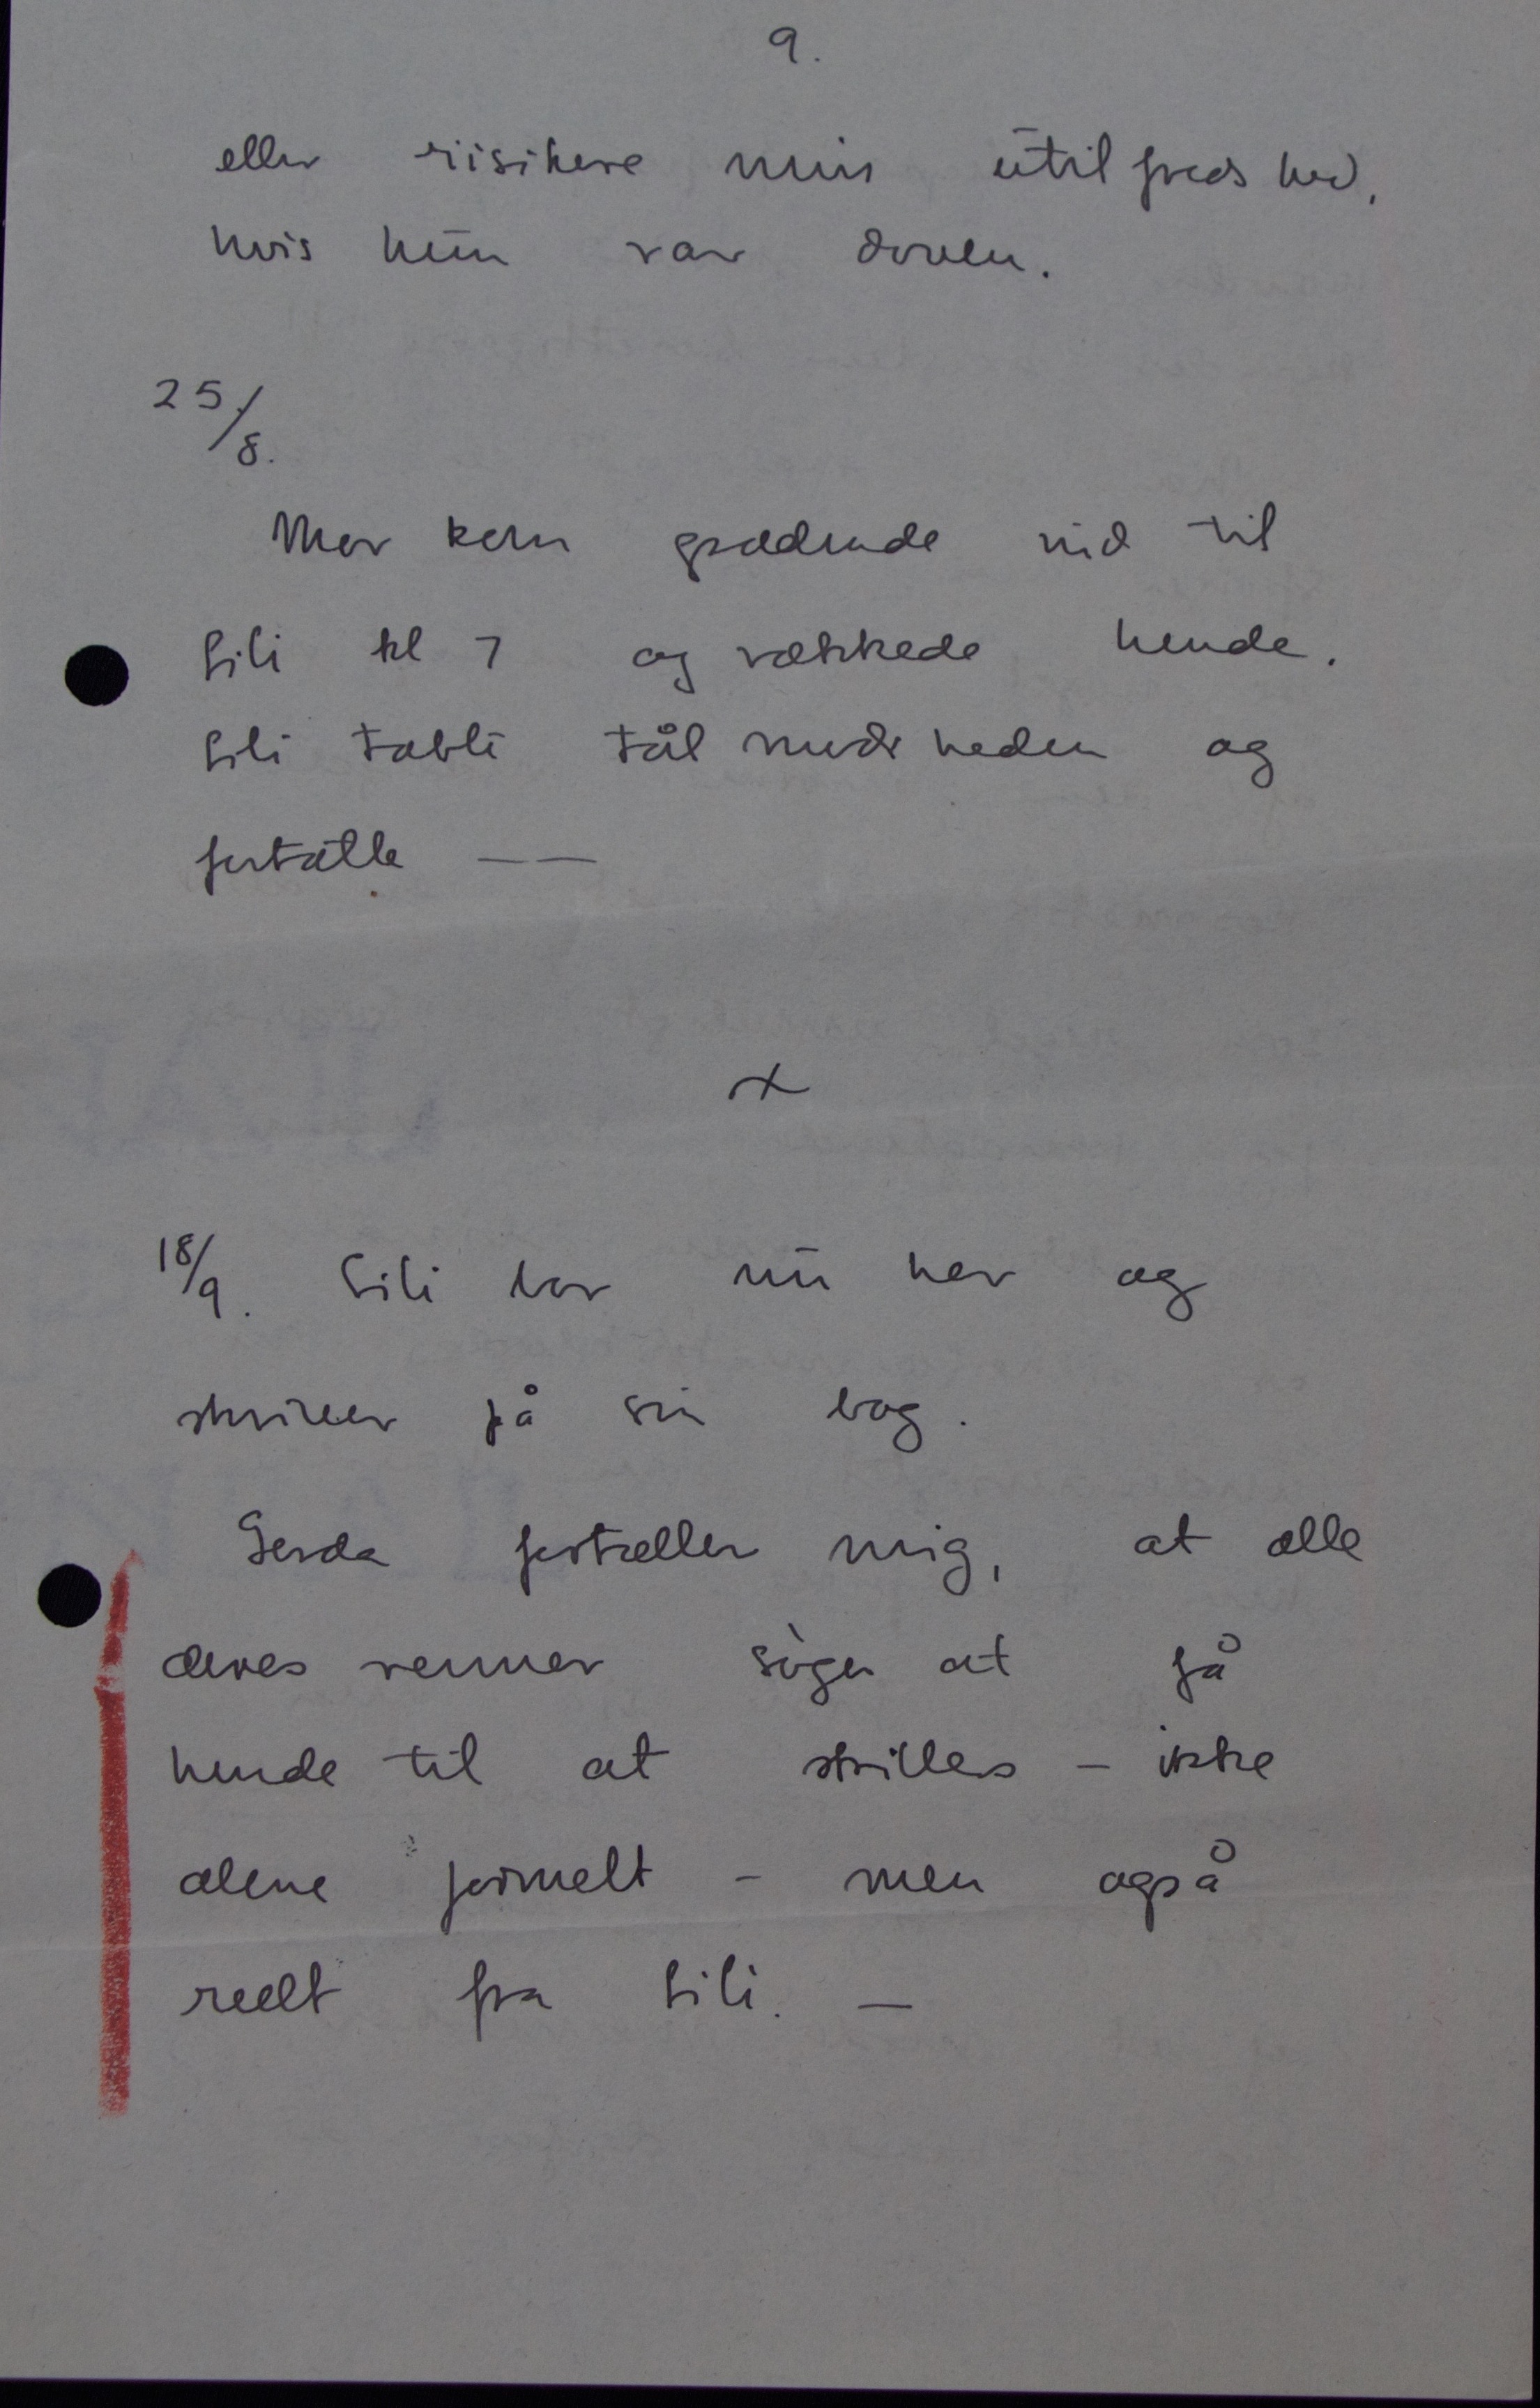 9.
eller risikere min utilfredshed,
hvis hun var doven.
25/8.
Mor kom grædende ind til
Lili kl 7 og vækkede hende.
Lili tabte tål modigheden og
fortalte — —
x
18/9. Lili bor nu her og
skriver på sin bog.
Gerda fortæller mig, at alle
deres venner søger at få
hende til at skilles – ikke
alene formelt – men også
reelt fra Lili. —